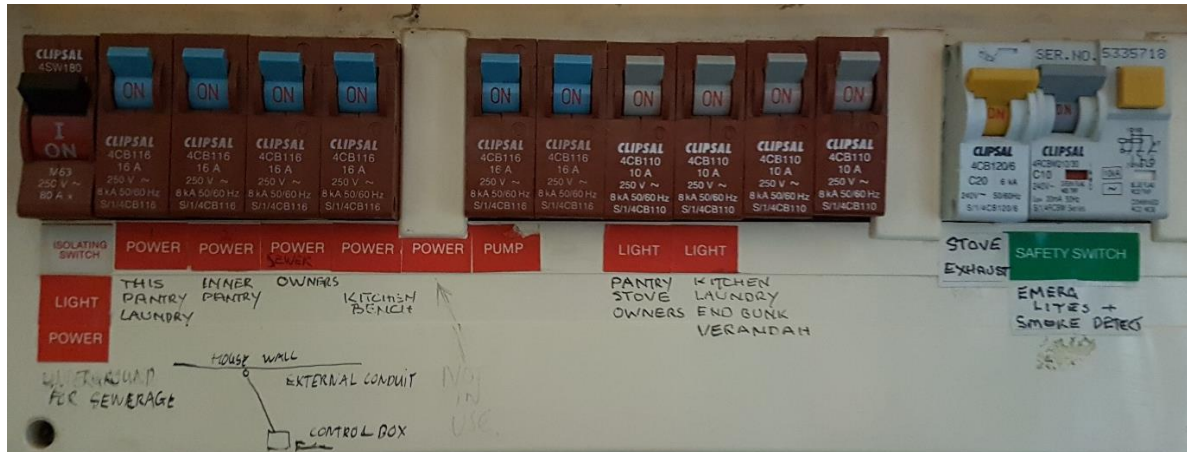 CLIPSAL
4SW180
I
ON
M63
250 V ~
80 A
ON
CLIPSAL
4CB116
16 A
250 V ~
8 kA 50/60 Hz
S/1/4CB116
ON
CLIPSAL
4CB116
16 A
250 V ~
8 kA 50/60 Hz
S/1/4CB116
ON
CLIPSAL
4CB116
16 A
250 V ~
8 kA 50/60 Hz
S/1/4CB116
ON
CLIPSAL
4CB116
16 A
250 V ~
8 kA 50/60 Hz
S/1/4CB116
ON
CLIPSAL
4CB116
16 A
250 V ~
8 kA 50/60 Hz
S/1/4CB116
ON
CLIPSAL
4CB116
16 A
250 V ~
8 kA 50/60 Hz
S/1/4CB116
ON
CLIPSAL
4CB110
10 A
250 V ~
8 kA 50/60 Hz
S/1/4CB110
ON
CLIPSAL
4CB110
10 A
250 V ~
8 kA 50/60 Hz
S/1/4CB110
ON
CLIPSAL
4CB110
10 A
250 V ~
8 kA 50/60 Hz
S/1/4CB110
ON
CLIPSAL
4CB110
10 A
250 V ~
8 kA 50/60 Hz
S/1/4CB110
SER.NO. 5335718
ON
CLIPSAL
4CB120/6
C20 6 kA
240V~ 50/60Hz
S/1/4CB120/6
ON
CLIPSAL
C10
240V~
10kA
ISOLATING
SWITCH
LIGHT
POWER
POWER
THIS
PANTRY
LAUNDRY
POWER
INNER
PANTRY
POWER
SEWER
OWNERS
POWER
KITCHEN
BENCH
POWER
NOT
IN
USE
PUMP
LIGHT
PANTRY
STOVE
OWNERS
LIGHT
KITCHEN
LAUNDRY
END BUNK
VERANDAH
STOVE
EXHAUST
SAFETY SWITCH
EMERG
LITES +
SMOKE DETECT
UNDERGROUND
FOR SEWERAGE
HOUSE WALL
EXTERNAL CONDUIT
CONTROL BOX